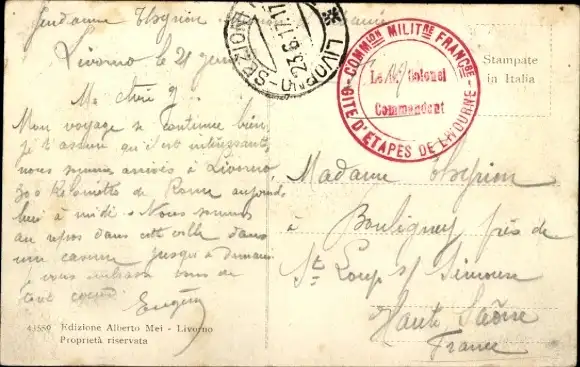 Gendarme
Livorno le 21 juin
Ma chérie
Mon voyage se continue bien
je t'assure qu'il est intéressant
nous sommes arrivés à Livorno
300 Kilomètres de Rome aujourd
hui à midi. Nous sommes
au repos dans cette ville dans
une caserne jusqu'à demain
je vous embrasse tous de
tout cœur
Eugène
43550 Edizione Alberto Mei - Livorno
Proprietà riservata
LIVORNO
23.6.17.17
COMMION MILITRE FRANCSE
GITE D'ETAPES DE LIVOURNE
Le Lt Colonel
Commandant
Stampate
in Italia
Madame
à Bouligney près de
St Loup s/ Semouse
Haute Saône
France